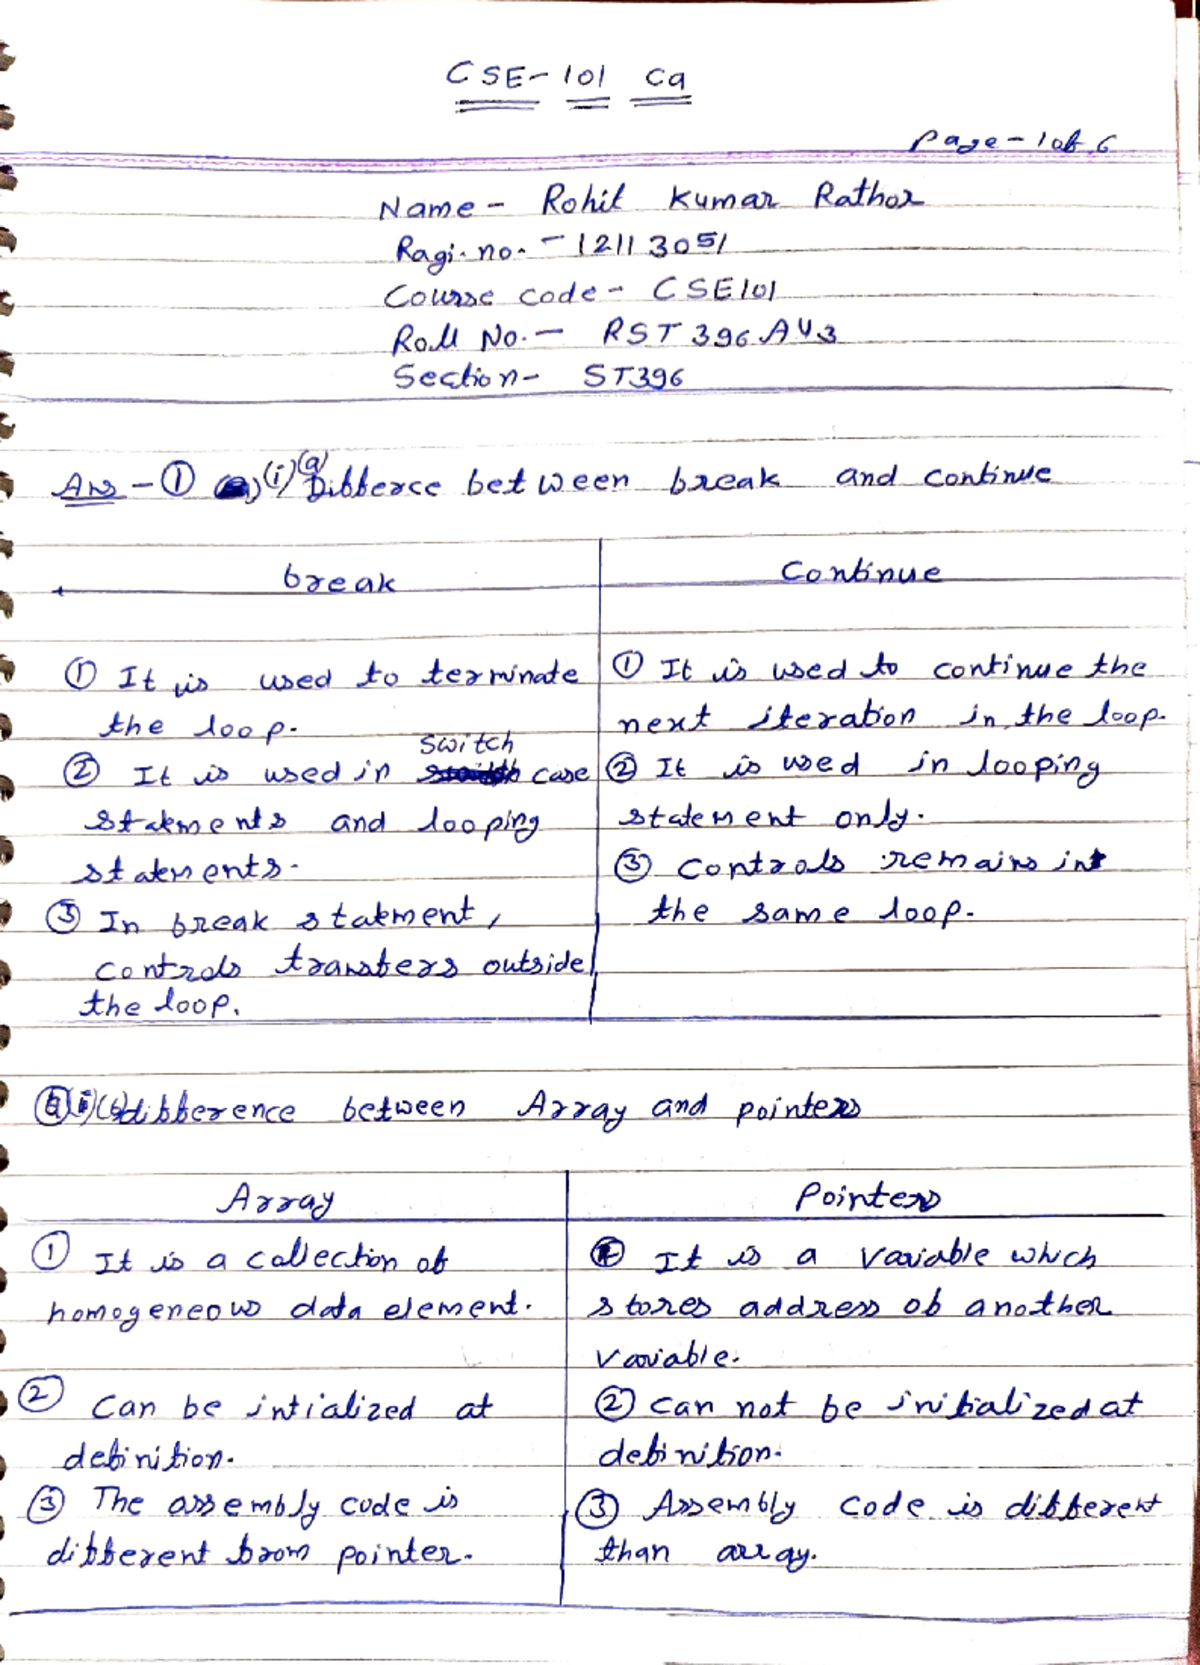 CSE-101 Ca
Page-1 of 6
Name - Rohit Kumar Rathor
Ragi. no. - 12113051
Course code - CSE101
Roll No. - RST396A43
Section - ST396
Ans - ① (i) (a) Differce between break and continue
break
Continue
① It is used to terminate
the loop.
② It is used in switch case
statments and looping
statements.
③ In break statment,
controls transfers outside
the loop.
① It is used to continue the
next iteration in the loop.
② It is used in looping
statement only.
③ Controls remains in
the same loop.
difference between Array and pointers
Array
Pointers
① It is a collection of
homogeneous data element.
② Can be intialized at
definition.
③ The assembly code is
different from pointer.
① It is a variable which
stores address of another
variable.
② Can not be initialized at
definition.
③ Assembly code is different
than array.